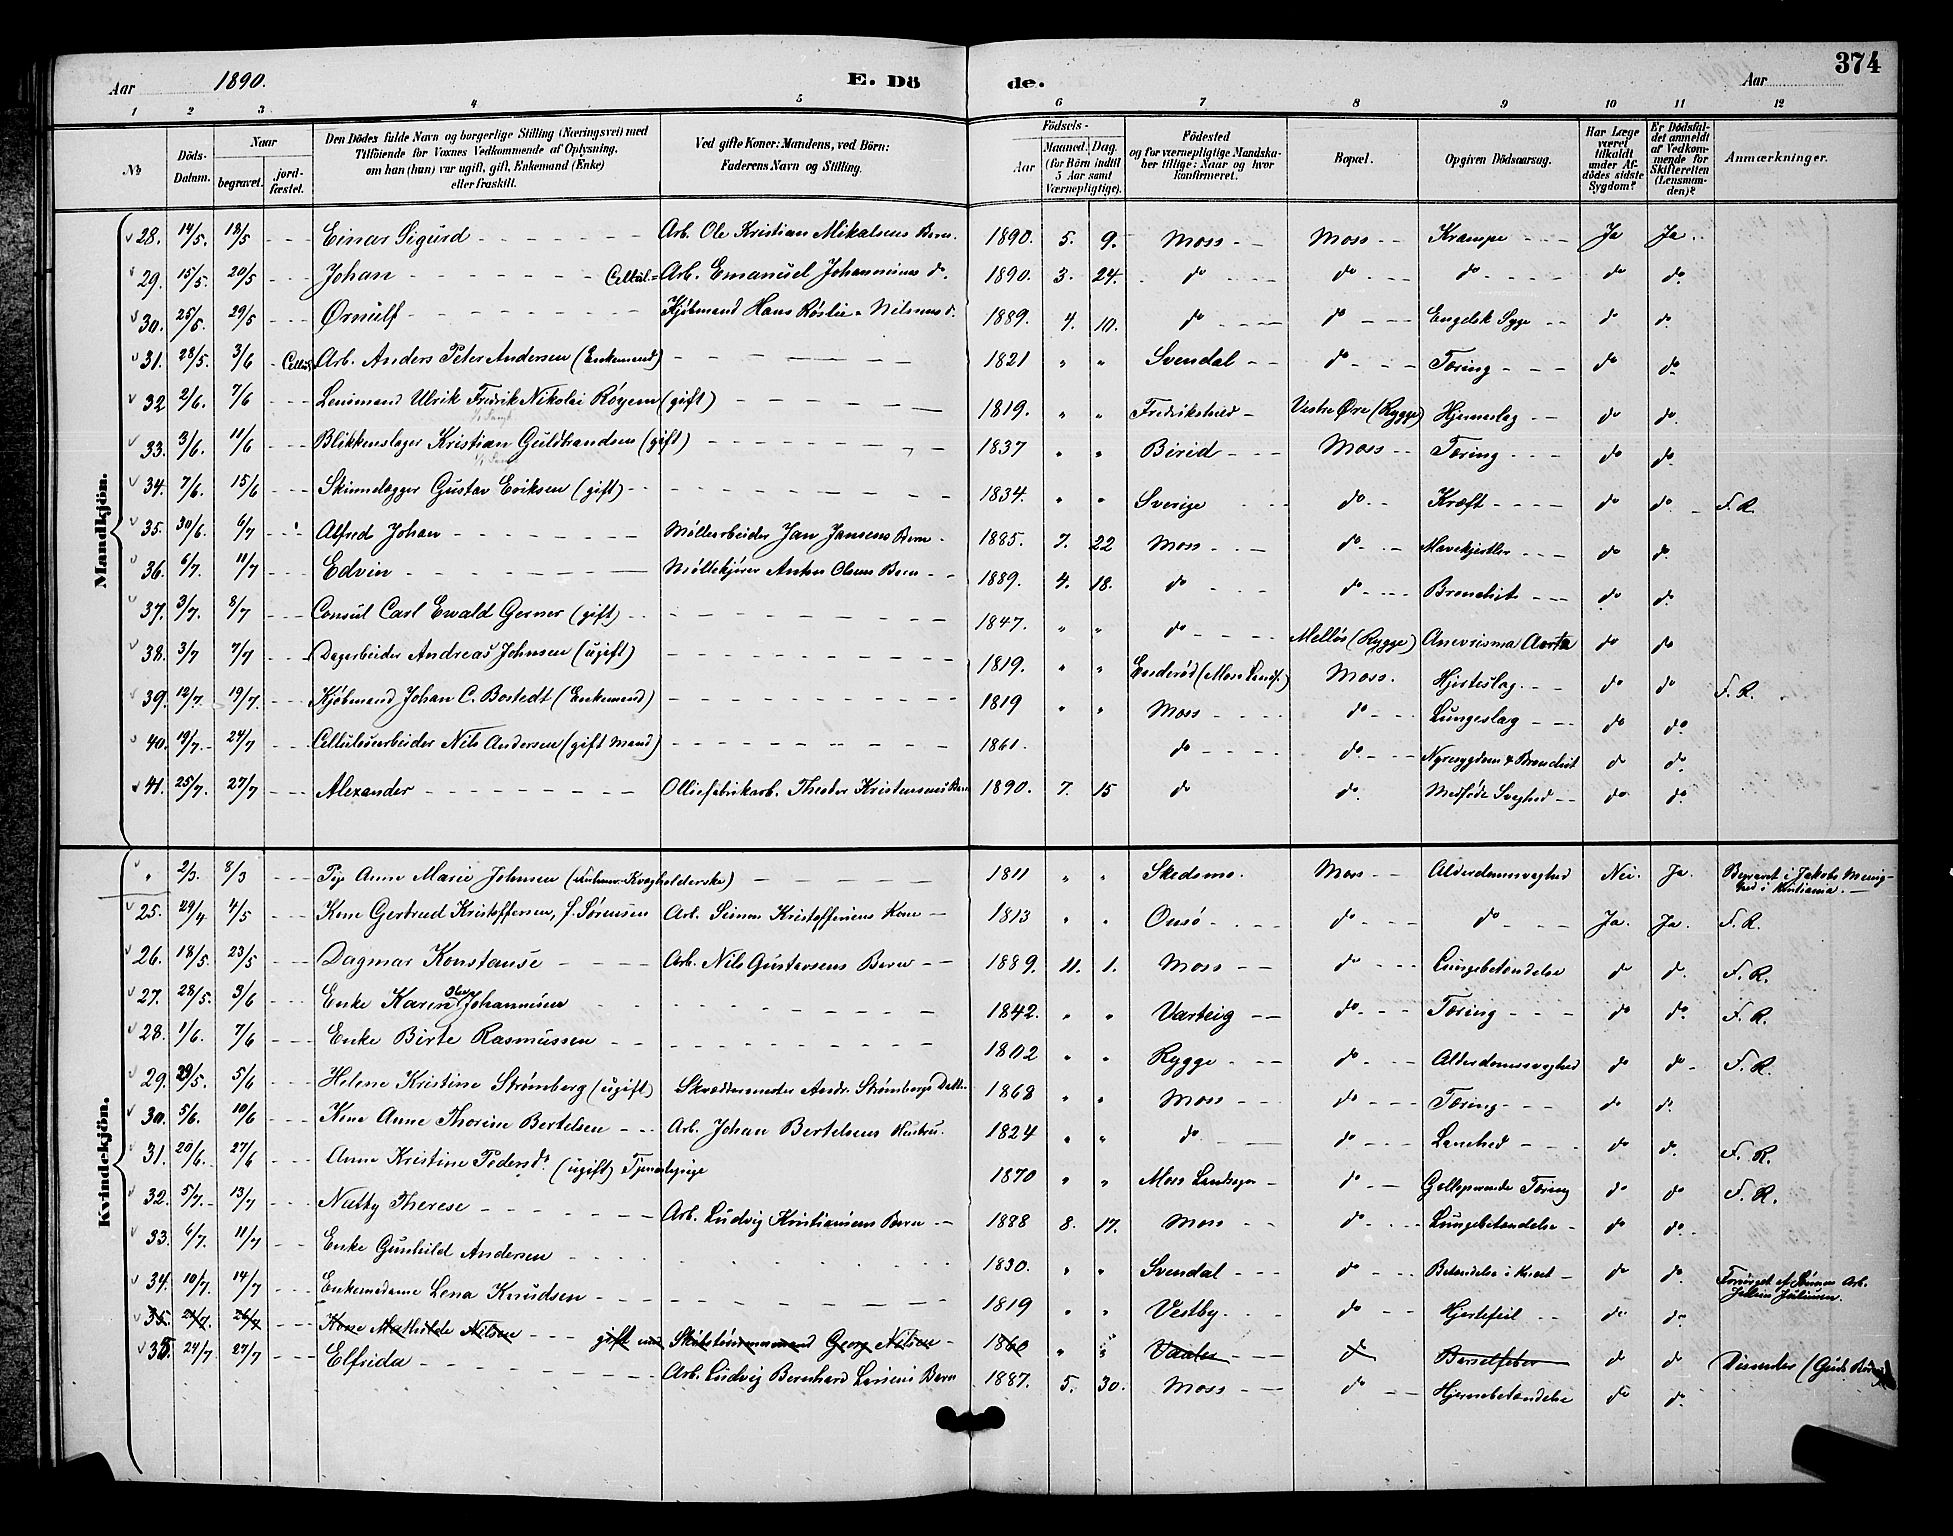 374
Aar 1890. E. Dö de. Aar
1 2 3 4 5 6 7 8 9 10 11 12
No
Döds-Datum.
Naar begravet. jord-fæstet.
Den Dödes fulde Navn og borgerlige Stilling (Næringsvei) med Tilföiende for Voxnes Vedkommende af Oplysning, om han (hun) var ugift, gift, Enkemand (Enke) eller fraskilt.
Ved gifte Koner: Mandens, ved Börn: Faderens Navn og Stilling.
Födsels- Aar Maaned. Dag. (for Börn indtil 5 Aar samt Værnepligtige).
Födested og for værnepligtige Mandskaber tillige: Naar og hvor konfirmeret.
Bopæl.
Opgiven Dödsaarsag.
Har Læge været tilkaldt under Afdödes sidste Sygdom?
Er Dödsfaldet anmeldt af Vedkommende for Skifteretten (Lensmanden)?
Anmærkninger.
Mandkjön.
28. 14/5. 18/5 Einar Sigurd Arb. Ole Kristian Mikalsens Barn. 1890. 5. 9. Moss Moss Krampe Ja Ja.
29. 15/5. 20/5 Johan Cellul= Arb. Emanuel Johannesens do. 1890. 3. 24. do do do do do.
30. 25/5. 29/5 Ørnulf Kjöbmand Hans Röslie-Nilsens d. 1889. 4. 10. do do Engelsk Syge do do.
31. 28/5. 3/6 Cellul. Arb. Anders Peter Andersen (Enkemand) 1821 " " Svendal do Tæring do do.
32 2/6. 7/6 Lensmand Ulrik Fredrik Nikolai Röyem (gift) 1819. " " Fredrikshald Vestre Øre (Rygge) Hjerneslag do do.
33. 3/6. 11/6 Blikkenslager Kristian Guldbrandsen (gift) 1837 " " Birid Moss Tæring do do.
34. 7/6. 15/6 Skinnelægger Gustav Eriksen (gift) 1834. " " Sverige do Kræft do do. F. R.
35. 30/6. 6/7 Alfred Johan Möllearbeider Jan Jansens Barn 1885. 7. 22 Moss do Mavekjertler do do.
36. 6/7. 11/7 Edvin Möllekjörer Anton Olsens Barn 1889. 4. 18. do do Bronchit do do.
37. 3/7. 8/7 Consul Carl Ewald Gerner (gift) 1847. " " do Mellös (Rygge) Anevrisma Aorta do do
38. 3/7 7/7 Dagarbeider Andreas Johnsen (ugift) 1819. " " Enderöd (Moss Lands.) Moss. Hjerteslag. do do F. R.
39. 12/7 19/7. Kjöbmand Johan C. Bostedt (Enkemand) 1819 " " Moss do Lungeslag do do.
40. 19/7. 24/7 Cellulosearbeider Nils Andersen (gift Mand) 1861. do do Nyresygdom & Bronchit do do.
41. 25/7. 27/7 Alexander Olliefabrikarb. Theodor Kristensens Barn 1890. 7. 15 do do. Medföde Svaghed do do.
Kvindekjön.
" 2/3. 8/3 Pige Anne Marie Johnsen 1811 " " Skedsmo. Moss Alderdomssvaghed Nei. Ja. Begravet i Jakobs Menighed i Kristiania.
25. 29/4 4/5 Kone Gertrud Kristoffersen, f. Sörensen Arb. Simen Kristoffersens Kone 1813 " " Onsö do do Ja. Ja. F. R.
26. 18/5. 23/5 Dagmar Konstanse Arb. Nils Gustavsens Barn 1889. 11. 1. Moss do Lungebetændelse do d. F. R.
27. 28/5. 3/6 Enke Karen Olea Johannesen 1842. " " Varteig do Tæring do do. F. R.
28. 1/6. 7/6 Enke Birte Rasmussen 1802 " " Rygge do Alderdomssvaghed do do F. R.
29. 29/5. 5/6 Helene Kristine Strömberg (ugift) Skræddermester Andr. Strömbergs Datter 1868 " " Moss do Tæring do do.
30. 5/6. 10/6 Kone Anne Thorine Bertelsen Arb. Johan Bertelsens Hustru. 1824 " " do do Lamhed do do. F. R.
31. 20/6. 27/6 Anne Kristine Pedersdr. (ugift) Tjenestepige 1870 " " Moss Landsogn do Gallopperende Tæring do do F. R.
32. 5/7. 13/7 Nathy Therese Arb. Ludvig Kristiansens Barn 1888 8. 17. Moss do Lungebetændelse do do.
33. 6/7. 11/7 Enke Gunhild Andersen 1830. " " Svendal do Betændelse i Kniet do do.
34. 10/7 14/7 Enkemadame Lena Knudsen 1819 " " Vestby do Hjertefeil do do. Forsörget af Sönnen Arb. Julius Juliussen.
35. 21/7. 26/7 Kone Mathilde Nilsen gift med Georg Nilsen 1860 " " Vaaler do Barselfeber do do
35. 24/7 27/7 Elfrida Arb. Ludvig Bernhard Larsens Barn 1887. 5. 30. Moss do Hjernebetændelse do do.